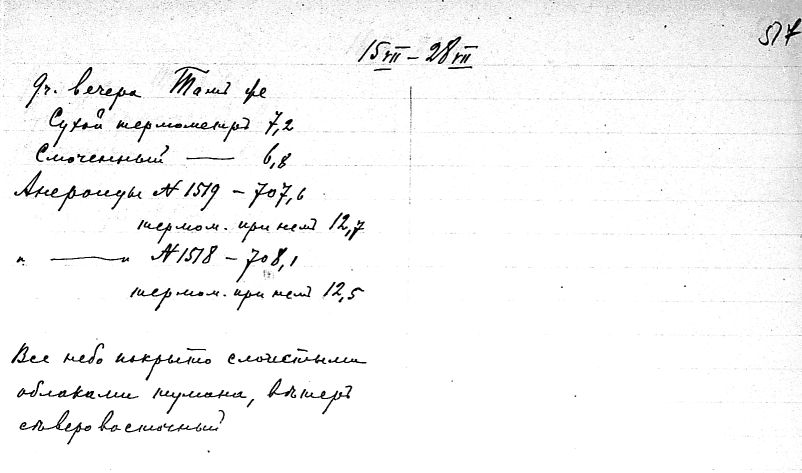 517
15 VII – 28 VII
9 ч. вечера Тамъ же
Сухой термометръ 7,2
Смоченный —— 6,8
Анероиды N 1519 – 707,6
термом. при немъ 12,7
" —— " N 1518 – 708,1
термом. при немъ 12,5
Все небо покрыто слоистыми
облаками тумана, вѣтеръ
сѣверовосточный